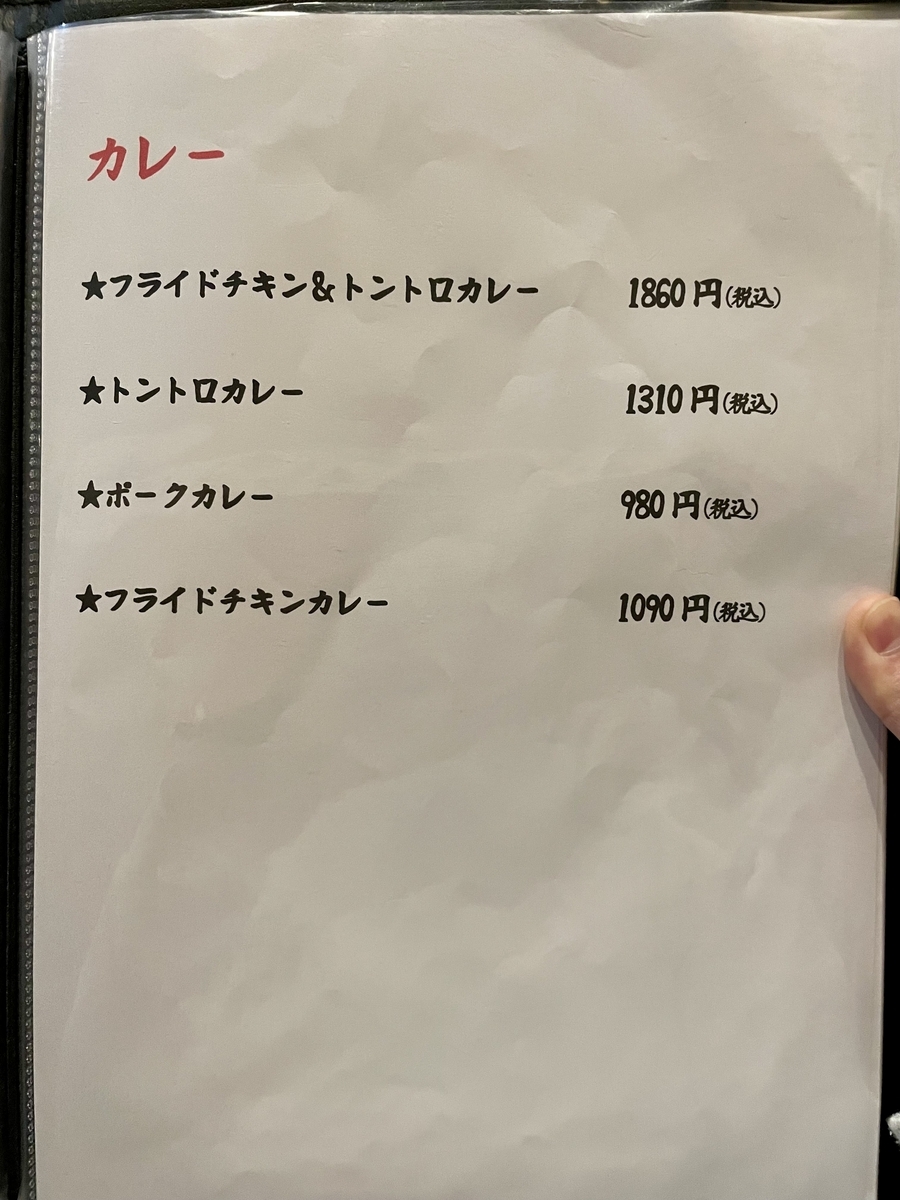 カレー
★フライドチキン&トントロカレー 1860円(税込)
★トントロカレー 1310円(税込)
★ポークカレー 980円(税込)
★フライドチキンカレー 1090円(税込)